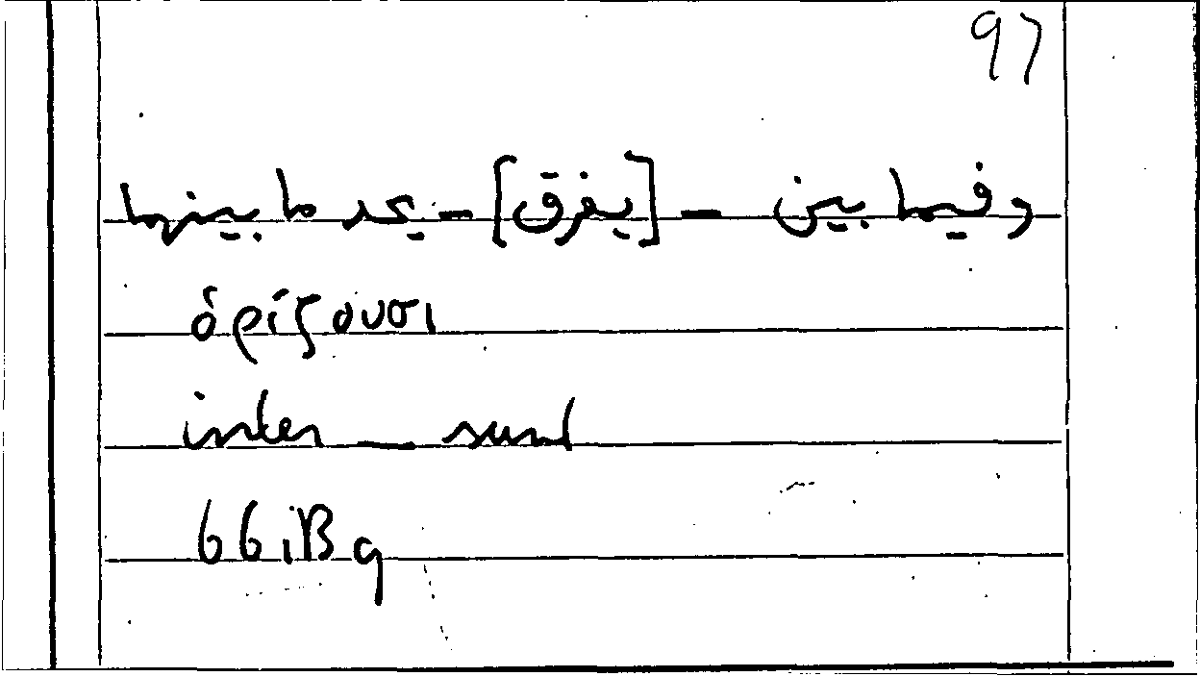 97
وفيما بين - [يفرق] - يحد ما بينهما
ὁρίζουσι
inter _ sunt
66iBq